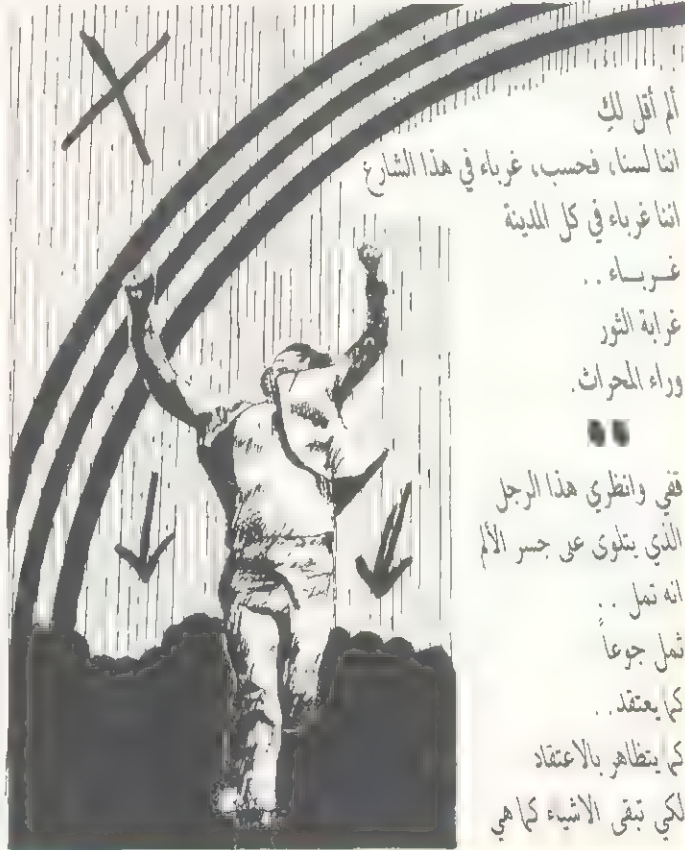 ألم أقل لكِ
اننا لسنا، فحسب، غرباء في هذا الشارع
اننا غرباء في كل المدينة
غـربـاء ..
غرابة الثور
وراء المحراث.
قفي وانظري هذا الرجل
الذي يتلوى على جسر الألم
انه ثمل ..
ثمل جوعاً
كما يعتقد ..
كما يتظاهر بالاعتقاد
لكي تبقى الاشياء كما هي